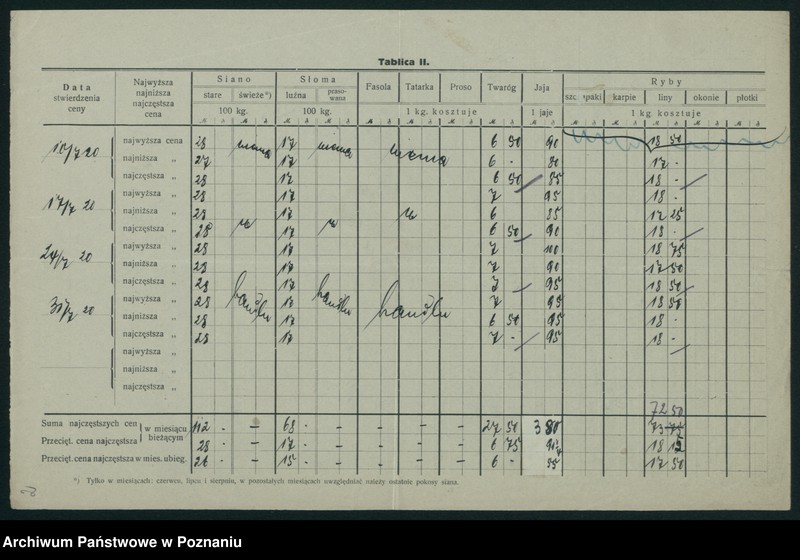 Tablica II.
Data stwierdzenia ceny | Najwyższa najniższa najczęstsza cena | Siano | Słoma | Fasola | Tatarka | Proso | Twaróg | Jaja | Ryby
stare | świeże*) | luźna | prasowana | karpie | liny | okonie | płotki
100 kg. | 100 kg. | 1 kg. kosztuje | 1 jaje | 1 kg. kosztuje
najwyższa cena 28 17 6 50 90 18 50
najniższa „ 27 17 6 - 80 17 -
najczęstsza „ 28 17 6 50 85 18 -
17/7 20 najwyższa „ 28 17 7 95 18 -
najniższa „ 28 17 6 85 17 25
najczęstsza „ 28 w 17 w w 6 50 90 18 -
24/7 20 najwyższa „ 28 17 7 100 18 75
najniższa „ 28 17 7 90 17 50
najczęstsza „ 28 17 7 95 18 50
najwyższa „ 28 handlu 17 handlu handlu 7 95 18 50
najniższa „ 28 17 6 50 95 18 -
najczęstsza „ 28 17 7 - 95 18 -
najwyższa „
najniższa „
najczęstsza „
72 50
Suma najczęstszych cen w miesiącu bieżącym 112 - - 68 - - - - - 27 50 3 80 73 75
Przecięt. cena najczęstsza 28 - - 17 - - - - - 6 75 18
Przecięt. cena najczęstsza w mies. ubieg. 26 - - 15 - - - - - 6 - 17 50
*) Tylko w miesiącach: czerwcu, lipcu i sierpniu, w pozostałych miesiącach uwzględnisć należy ostatnie pokosy siana.
Archiwum Państwowe w Poznaniu